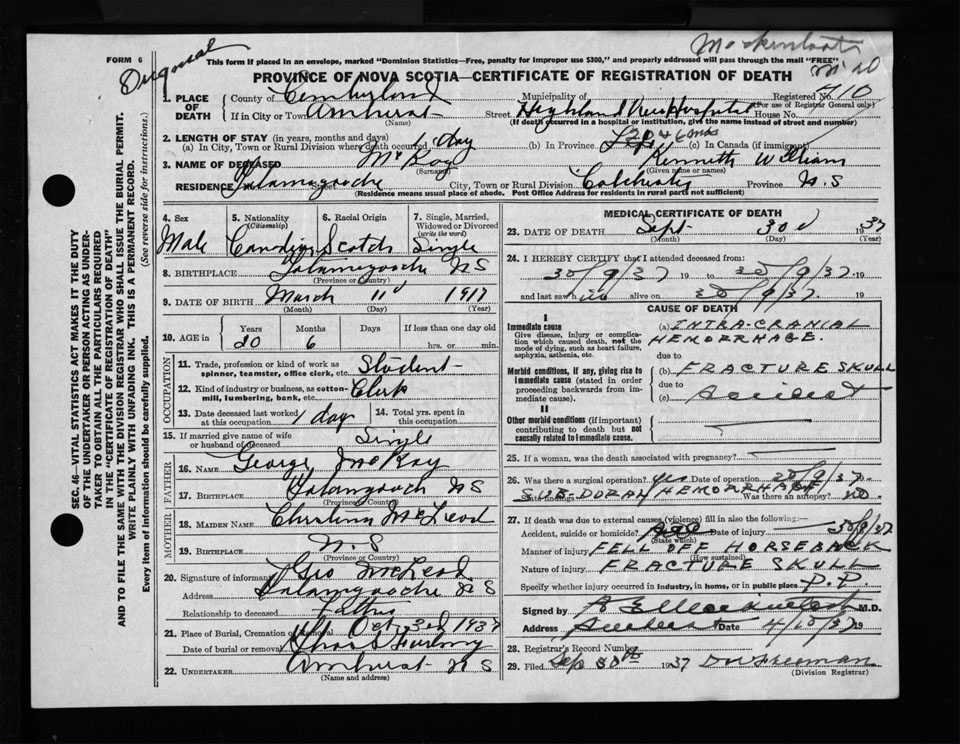 FORM 6
This form if placed in an envelope, marked "Dominion Statistics—Free, penalty for improper use $300," and properly addressed will pass through the mail "FREE"
PROVINCE OF NOVA SCOTIA—CERTIFICATE OF REGISTRATION OF DEATH
1. PLACE OF DEATH
County of Cumberland Municipality of Registered No. 410
(For use of Registrar General only)
If in City or Town Amherst Street Highland View Hospital House No.
(Name) (If death occurred in a hospital or institution, give the name instead of street and number)
2. LENGTH OF STAY (in years, months and days)
(a) In City, Town or Rural Division where death occurred day (b) In Province 20 y 6 mos (c) In Canada (if immigrant)
3. NAME OF DECEASED McKay Kenneth William
(Surname) (Given name or names)
RESIDENCE Tatamagouche Street City, Town or Rural Division Colchester Province N.S
(Residence means usual place of abode. Post Office Address for residents in rural parts not sufficient)
4. Sex Male
5. Nationality (Citizenship) Canadian
6. Racial Origin Scotch
7. Single, Married, Widowed or Divorced (write the word) Single
8. BIRTHPLACE Tatamagouche NS
(Province or Country)
9. DATE OF BIRTH March 11 1917
(Month) (Day) (Year)
10. AGE in Years Months Days If less than one day old
20 6 hrs. or min.
OCCUPATION
11. Trade, profession or kind of work as spinner, teamster, office clerk, etc. Student
12. Kind of industry or business, as cotton-mill, lumbering, bank, etc. Clerk
13. Date deceased last worked at this occupation 1 day
14. Total yrs. spent in this occupation
15. If married give name of wife or husband of deceased Single
FATHER
16. NAME George McKay
17. BIRTHPLACE Tatamagouche NS
(Province or Country)
MOTHER
18. MAIDEN NAME McLeod
19. BIRTHPLACE N.S
(Province or Country)
20. Signature of informant Geo McLeod
Address Tatamagouche NS
Relationship to deceased Father
21. Place of Burial, Cremation or Removal
Date of burial or removal Oct 3rd 1937
22. UNDERTAKER Amherst NS
(Name and address)
MEDICAL CERTIFICATE OF DEATH
23. DATE OF DEATH Sept 30 1937
(Month) (Day) (Year)
24. I HEREBY CERTIFY that I attended deceased from:
30/9/37 19 to 30/9/37. 19
and last saw him alive on 30/9/37. 19
CAUSE OF DEATH
I
Immediate cause
Give disease, injury or complication which caused death, not the mode of dying, such as heart failure, asphyxia, asthenia, etc.
(a) INTRA-CRANIAL HEMORRHAGE.
due to
Morbid conditions, if any, giving rise to immediate cause (stated in order proceeding backwards from immediate cause).
(b) FRACTURE SKULL
due to
(c) Accident
II
Other morbid conditions (if important) contributing to death but not causally related to immediate cause.
25. If a woman, was the death associated with pregnancy?
26. Was there a surgical operation? yes Date of operation 30/9/37.
State findings SUB-DURAL HEMORRHAGE Was there an autopsy? NO.
27. If death was due to external causes (violence) fill in also the following:—
Accident, suicide or homicide? Date of injury 30/9/37
(State which)
Manner of injury FELL OFF HORSEBACK
(How sustained)
Nature of injury FRACTURE SKULL
Specify whether injury occurred in industry, in home, or in public place P.P.
Signed by M.D.
Address Amherst Date 4/10/37 19
28. Registrar's Record Number
29. Filed Sep 30th 1937 DW Freeman
(Division Registrar)
SEC. 46—VITAL STATISTICS ACT MAKES IT THE DUTY OF THE UNDERTAKER OR PERSON ACTING AS UNDERTAKER TO OBTAIN ALL THE PARTICULARS REQUIRED IN THE "CERTIFICATE OF REGISTRATION OF DEATH"
AND TO FILE THE SAME WITH THE DIVISION REGISTRAR WHO SHALL ISSUE THE BURIAL PERMIT.
WRITE PLAINLY WITH UNFADING INK. THIS IS A PERMANENT RECORD.
Every item of information should be carefully supplied. (See reverse side for instructions.)